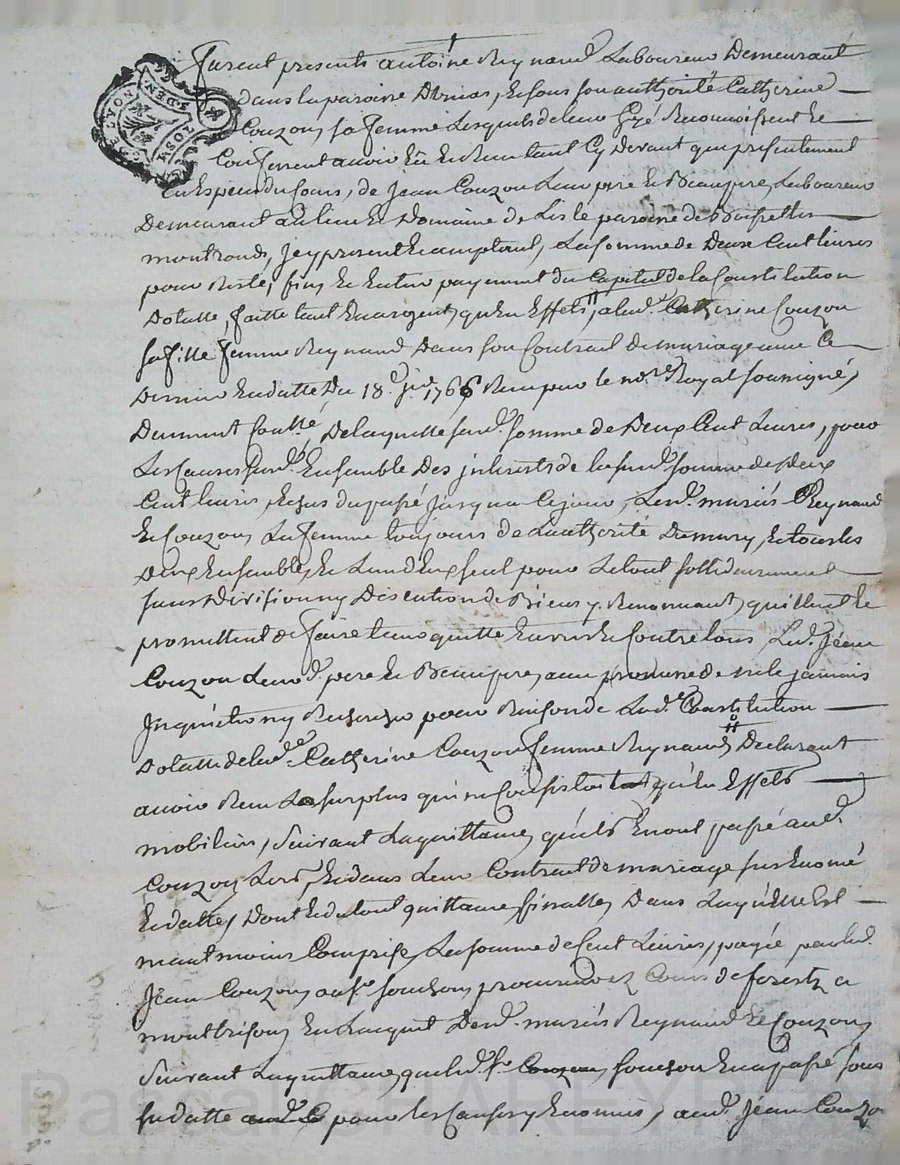 furent presents antoine Reynaud Laboureur Demeurant
dans la paroisse, Et sous son authorité Catherine
Couzon, sa femme Lesquels de leur gré Reconnoissent Et
Confessent avoir Eü Et Reçu tant Cy Devant que présentement
En Espèces du Cours, de Jean Couzon Leur pere Et Beaupere, Laboureur
Demeurant au lieu Et Domaine de Lisle paroisse de
montrond, Icy present Et acceptant, La somme de Deux Cent livres
pour Reste, fin Et Entier payement du Capital de la Constitution
Dotalle, faitte tant En argent, qu'en Effets, a lad.e Catherine Couzon
sa fille femme Reynaud Dans son Contrat de mariage avec Ce
Dernier En datte Du 18.e 1766 Reçu par le no.re Royal soussigné,
Duement Contr.é, De laquelle susd.e somme de Deux Cent Livres, pour
Les Causes susd.es Ensemble Des interests de la susd.e somme de Deux
Cent livres, Echus du passé jusqu'a Ce jour, Lesd. mariés Reynaud
Et Couzon, La femme toujours de L'authorité Du mary, Et tous les
Deux Ensemble, Et L'un d'Eux seul pour Le tout sollidairement
sans Division ny Discution de Biens y Renonçant, quittent Et
promettent de faire tenir quitte Envers Et Contre tous Led. Jean
Couzon Leurd. pere Et Beaupere, avec promesse de ne le jamais
Inquiéter ny Rechercher pour Raison de Lad.e Constitution
Dotalle de lad.e Catherine Couzon femme Reynaud, Declarant
avoir Reçu Le surplus qui ne Consistoit qu'En Effets
mobiliers, Suivant La quittance, qu'ils En ont passé aud.
Couzon Leur, Et dans Leur Contrat de mariage sus Enoncé
Et datté, Dont Et du tout quittance finalle, Dans Laquelle Est
neantmoins Comprise, La somme de Cent Livres, payée par led.
Jean Couzon, au S.r procureur Ez Cours de forestz a
montbrison, En Lacquit Desd. mariés Reynaud Et Couzon,
Suivant La quittance, que led. S.r Couzon, En a passé sous
sa datte pour les Causes y Enoncées, aud. Jean Couzo
Pascal CHAREYRON